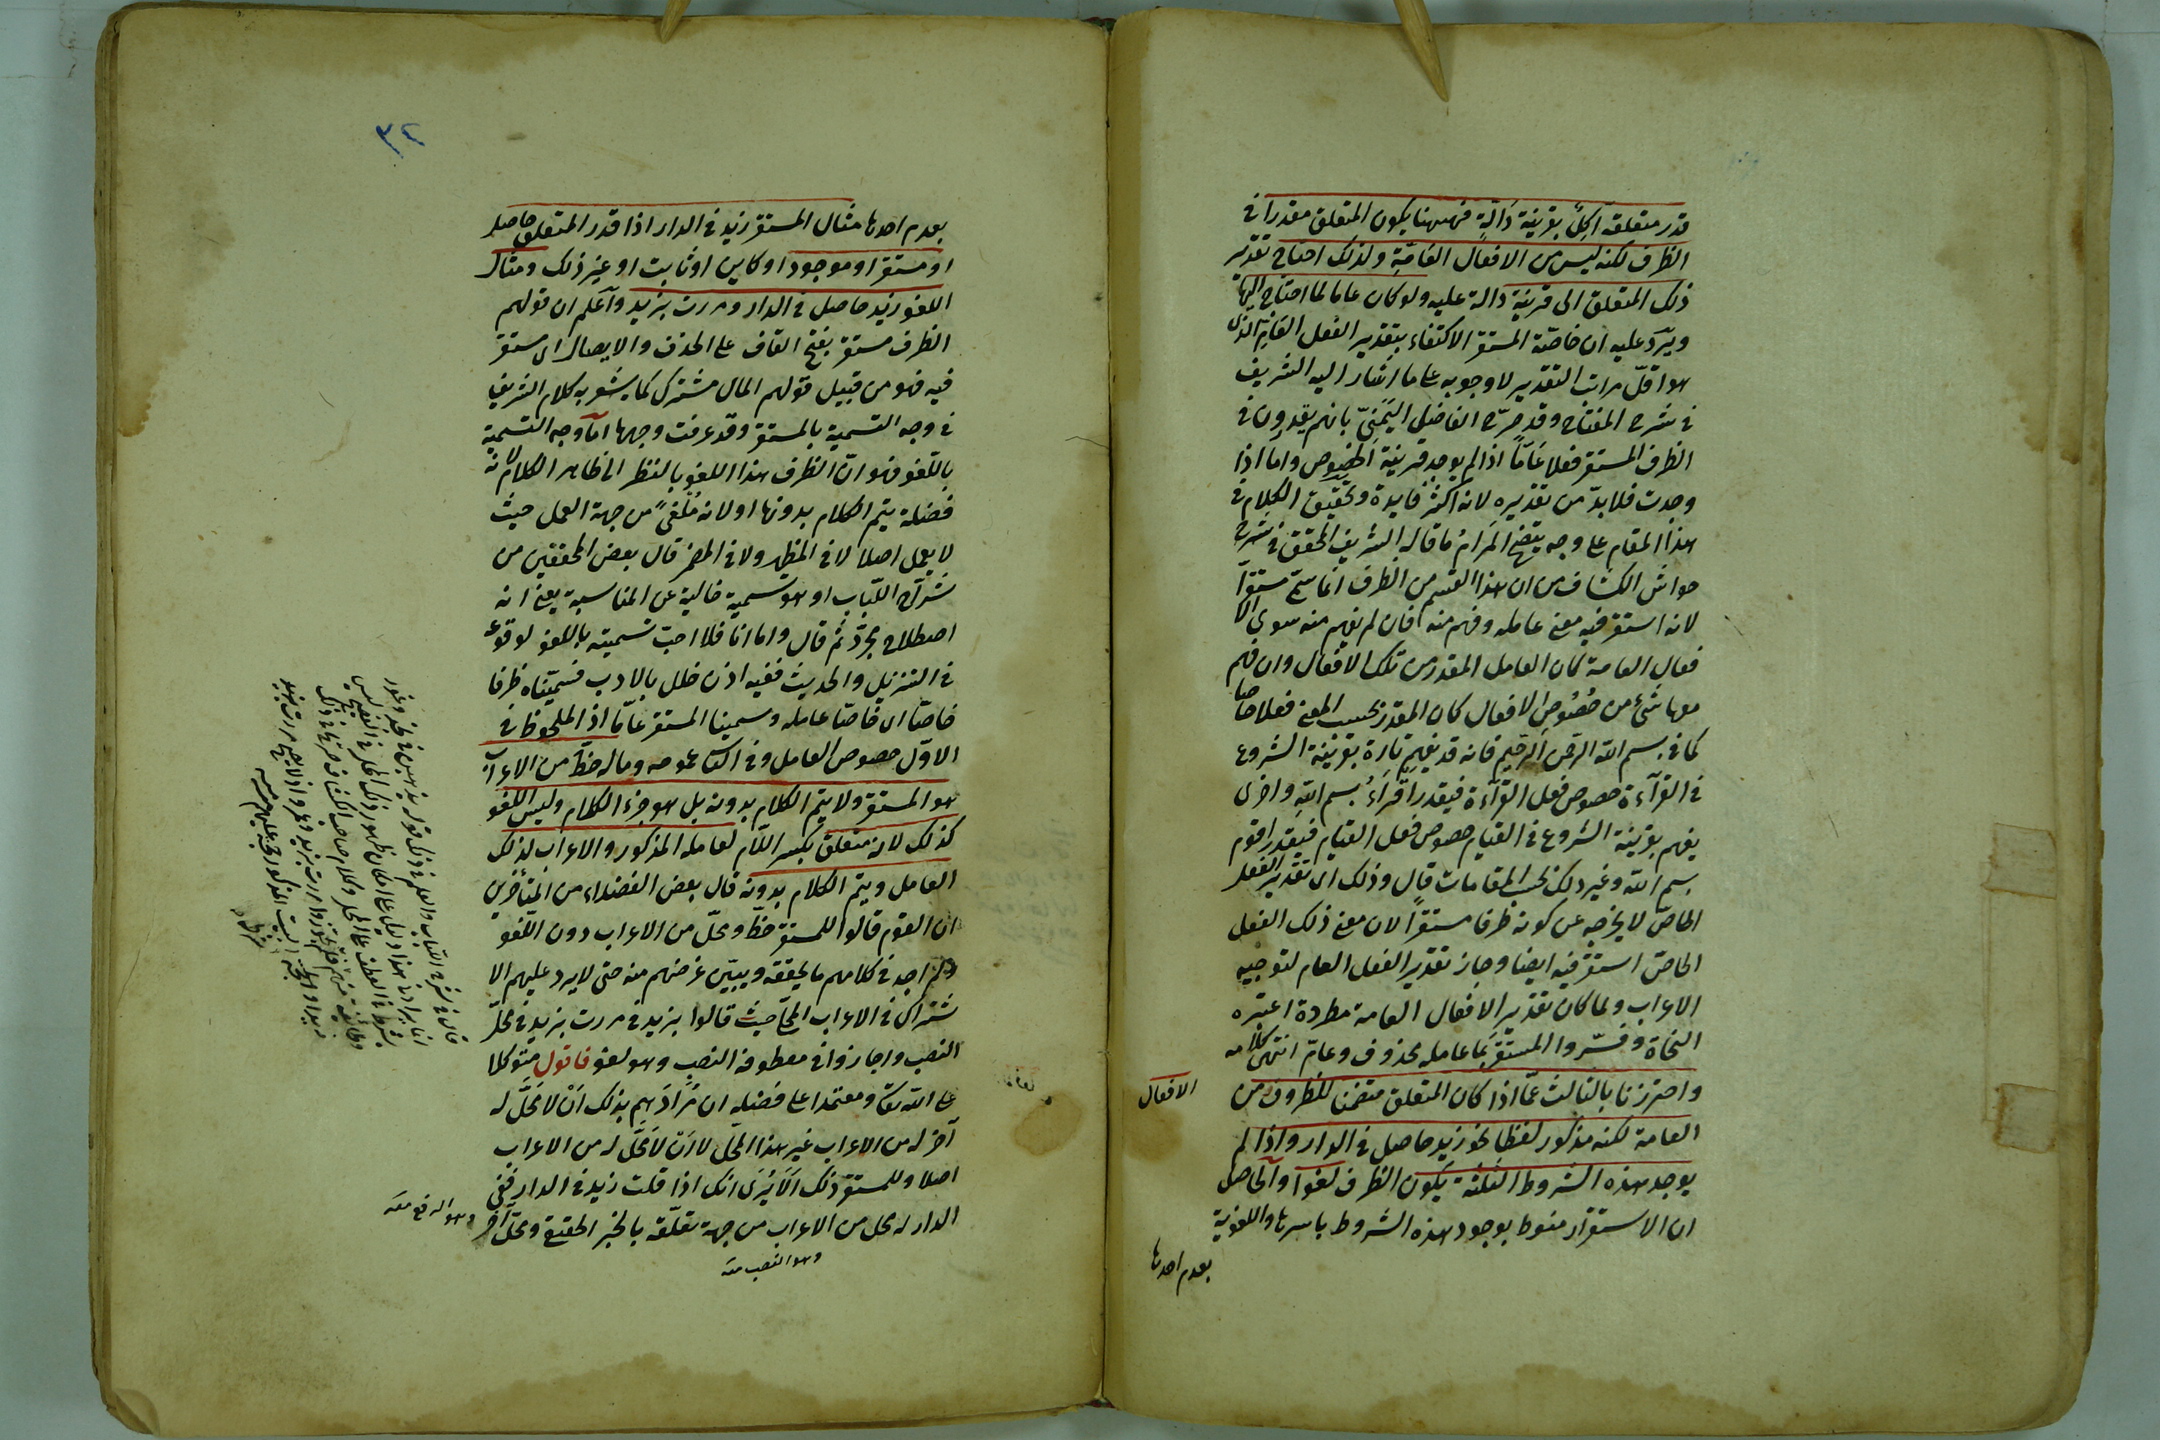 قدر متعلقه آكل بقرينة دالّة فههنا يكون المتعلق مقدرا فى
الظرف لكنه ليس من الافعال العامّة ولذلك احتاج تقدير
ذلك المتعلق الى قرينة دالة عليه ولو كان عاما لما احتاج اليها
ويرد عليه ان خاصّة المستقر الاكتفاء بتقدير الفعل العام الذى
هو اقلّ مراتب التقدير لا وجوبه على ما اشار اليه الشريف
فى شرح المفتاح وقد صرّح الفاضل اليمنىّ بانهم يقدرون فى
الظرف المستقر فعلا عامّاً اذا لم يوجد قرينة الخصوص واما اذا
وجدت فلا بدّ من تقديره لانه اكثر فايدة وتحقيق الكلام فى
هذا المقام على وجه يتضح المرام ما قاله الشريف المحقق فى شرح
حواشى الكشاف من ان هذا القسم من الظرف انما سمّى مستقرّا
لانه استقر فيه معنى عامله وفهم منه فان لم يفهم منه سوى الا
فعال العامة كان العامل المقدر من تلك الافعال وان فهم
معها شئ من خصوص الافعال كان المقدر بحسب المعنى فعلا خاصا
كما فى بسم الله الرحمن الرحيم فانه قد يفهم تارة بقرينة الشروع
فى القرآءة خصوص فعل القرآءة فيقدر اقراء بسم الله واخرى
يفهم بقرينة الشروع فى القيام خصوص فعل القيام فيقدر اقوم
بسم الله وغير ذلك بحسب المقامات قال وذلك اى تقدير الفعل
الخاصّ لا يخرجه عن كونه ظرفا مستقراً لان معنى ذلك الفعل
الخاصّ استقرّ فيه ايضا وجاز تقدير الفعل العام لتوجيه
الاعراب ولما كان تقدير الافعال العامة مطردة اعتبره
النحاة وفسّروا المستقرّ بما عامله محذوف وعامّ انتهى كلامه
واحترزنا بالثالث عمّا اذا كان المتعلق متضمنا للظروف من
الافعال
العامة لكنه مذكور لفظا نحو زيد حاصل فى الدار واذا لم
يوجد هذه الشروط الثلثة يكون الظرف لغوا والحاصل
ان الاستقرار منوط بوجود هذه الشروط باسرها واللغوية
بعدم احدها
٣٢
بعدم احدها مثال المستقر زيد فى الدار اذا قدر المتعلق حاصل
او مستقر او موجود او كاين او ثابت او غير ذلك ومثال
اللغو زيد حاصل فى الدار ومررت بزيد واعلم ان قولهم
الظرف مستقر بفتح القاف على الحذف والايصال اى مستقر
فيه فهو من قبيل قولهم المال مشترك كما يشعر به كلام الشريف
فى وجه التسمية بالمستقر وقد عرفت وجهها امّا وجه التسمية
باللّغو فهو انّ الظرف هذا اللغو بالنظر الى ظاهر الكلام لانه
فضلة يتم الكلام بدونها او لانه ملغىً من جهة العمل حيث
لا يعمل اصلا لا فى المظهر ولا فى المضمر قال بعض المحققين من
شرّاح اللباب او هو تسمية خالية عن المناسبة يعنى انه
اصطلاح مجرّد ثم قال واما انا فلا احبّ تسميته باللغو لوقوعه
فى التنزيل والحديث ففيه اذن خلل بالادب فسمّيناه ظرفا
خاصّا اى خاصّا عامله وسمينا المستقر عامّا اذ الملحوظ فى
الاوّل خصوص العامل وفى الثانى عمومه وماله حظّ من الاعراب
هو المستقر ولا يتم الكلام بدونه بل هو جزء الكلام وليس اللغو
كذلك لانه متعلق بكسر اللّام لعامله المذكور والاعراب لذلك
العامل ويتم الكلام بدونه قال بعض الفضلاء من المتأخرين
ان القوم قالوا للمستقر حظّ ومحلّ من الاعراب دون اللغو
ولم اجد فى كلامهم ما يحققه ويبيّن غرضهم منه حتى لا يرد عليهم الا
شتراك فى الاعراب المحلى حيث قالوا بزيد فى مررت بزيد فى محلّ
النصب واجازوا فى معطوفه النصب وهو لغو فاقول متوكلا
على الله تعا ومعتمدا على فضله ان مرادهم بذلك ان لا محلّ له
آخر له من الاعراب غير هذا المحلّ لا انّ لا محلّ له من الاعراب
اصلا وللمستقرّ ذلك الا يرى انك اذا قلت زيد فى الدار ففى
الدار له محل من الاعراب من جهة تعلّقه بالخبر الحقيقى ومحلّ آخر
وهو الرفع منه
وهو النصب منه